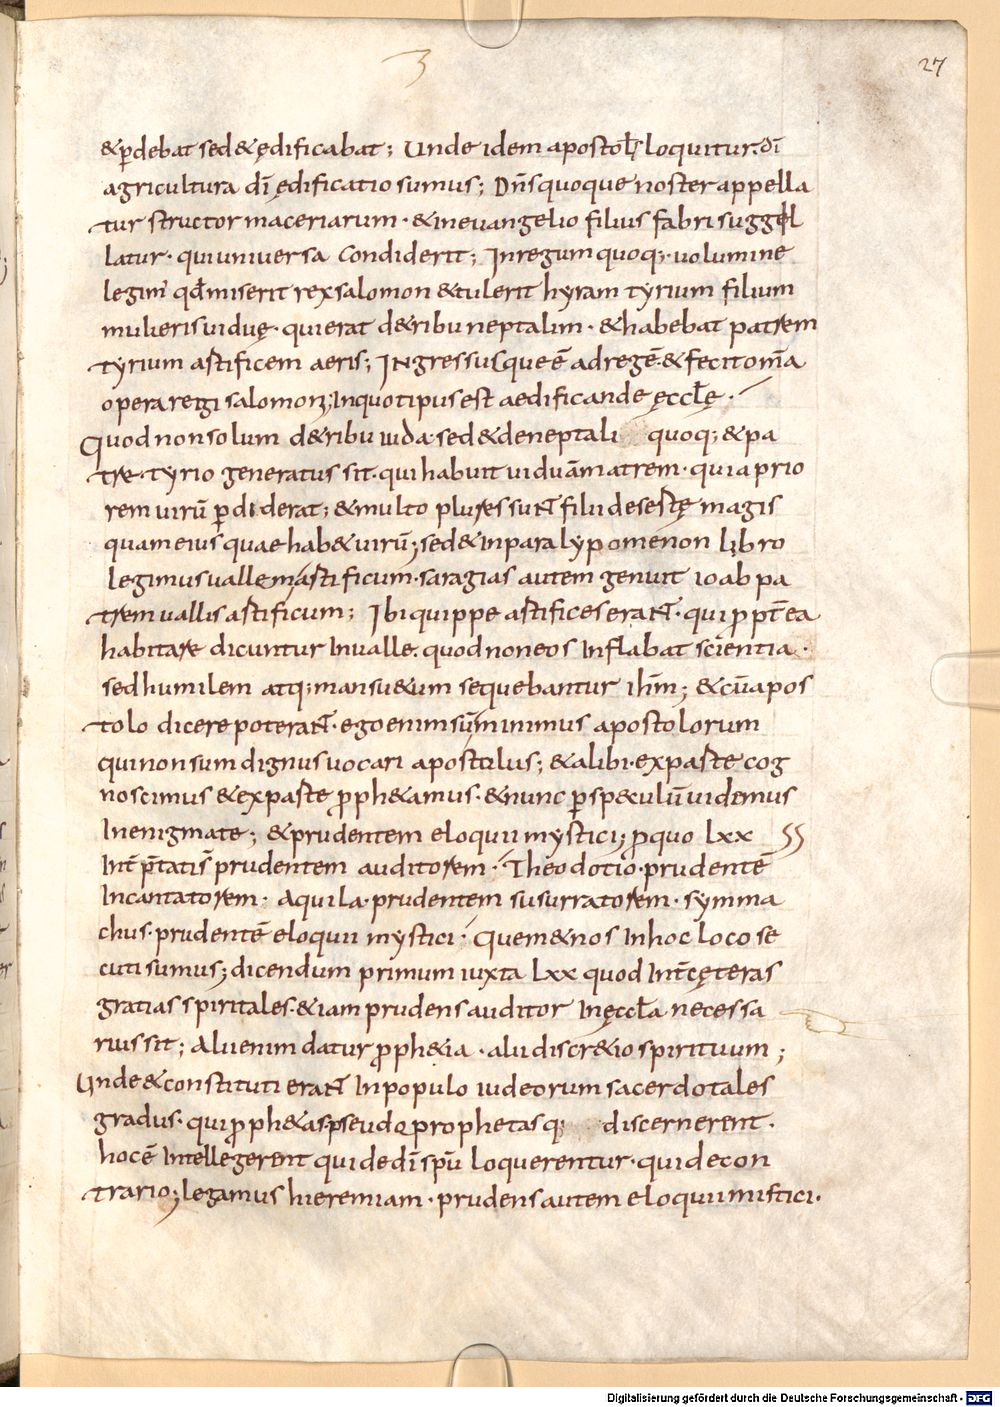 3
27
& ꝑdebat sed & ędificabat; Unde idem apostol' loquitur. dī
agricultura dī ędificatio sumus; Dn̄s quoque noster appella
tur structor maceriarum · & in evangelio filius fabri suggel
latur · qui universa condiderit; In regum quoq; · volumine
legim' qd̄ miserit rex salomon & tulerit hyram tyrium filium
mulieris viduę · qui erat de tribu neptalim · & habebat patrem
tyrium astificem aeris; Ingressusque ē ad regē & fecit om̄a
opera regi salomoni; In quo tipus est aedificande ęccl̄ę ·
Quod non solum de tribu iuda · sed & de neptali quoq; & pa
tre · tyrio generatus sit · qui habuit viduā matrem · quia prio
rem virū ꝑdiderat; & multo plures sunt filii desertę magis
quam eius quae hab& virū; sed & in paralypomenon libro
legimus valle m astificum · saragias autem genuit ioab pa
trem vallis astificum; Ibi quippe astifices erant · qui ꝓpt̄ea
habitare dicuntur In valle · quod non eos Inflabat scientia ·
sed humilem atq; mansu&um sequebantur ih̄m; & cū apos
tolo dicere poterant · ego enim sū minimus apostolorum
qui non sum dignus vocari apostolus; & alibi · ex parte cog
noscimus & ex parte ꝓph&amus · & nunc ꝑ spęculū videmus
In enigmate; & prudentem eloquii mystici; ꝓ quo lxx
Int̄p̄tatis prudentem auditorem · Theodotio · prudentē
Incantatorem · Aquila · prudentem susurratorem · symma
chus · prudentē eloquii mystici · Quem & nos In hoc loco se
cuti sumus; dicendum primum iuxta lxx quod Int̄ cęteras
gratias spiritales · & iam prudens auditor In ęccl̄a necessa
rius sit; Alii enim datur ꝓph&ia · alii discr&io spirituum;
Unde & constituti erant In populo iudeorum sacerdotales
gradus · qui ꝓph&as pseudoprophetasq; discernerent ·
hoc ē Intellegerent qui de dī sp̄u loquerentur · qui de con
trario; legamus hieremiam · prudens autem eloquii mistici ·
Digitalisierung gefördert durch die Deutsche Forschungsgemeinschaft - DFG